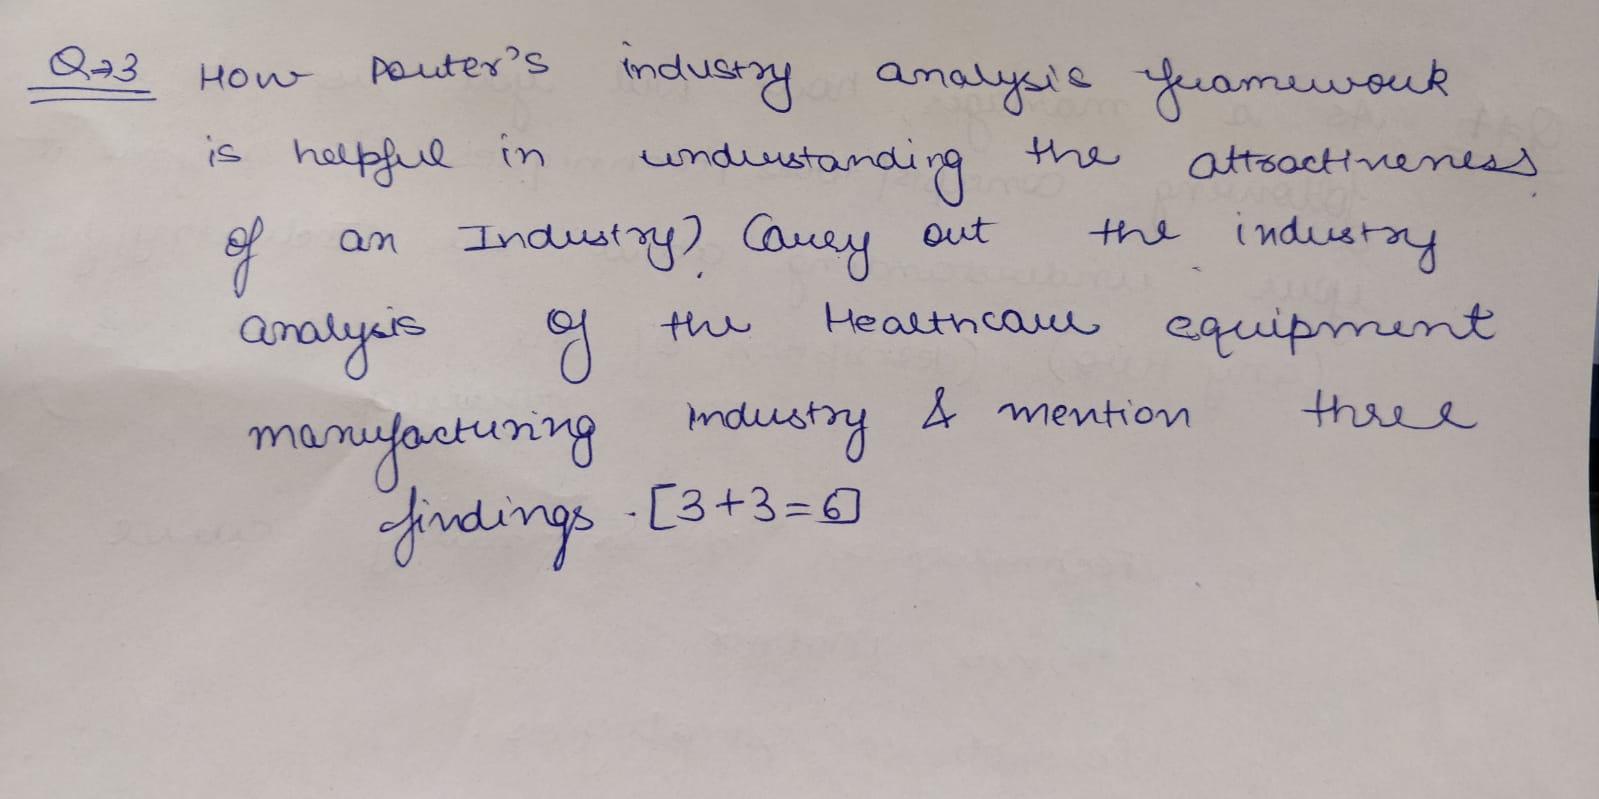 Q→3 How Porter's industry analysis framework
is helpful in understanding the attractiveness
of an Industry? Carry out the industry
analysis of the Healthcare equipment
manufacturing industry & mention three
findings. [3+3=6]